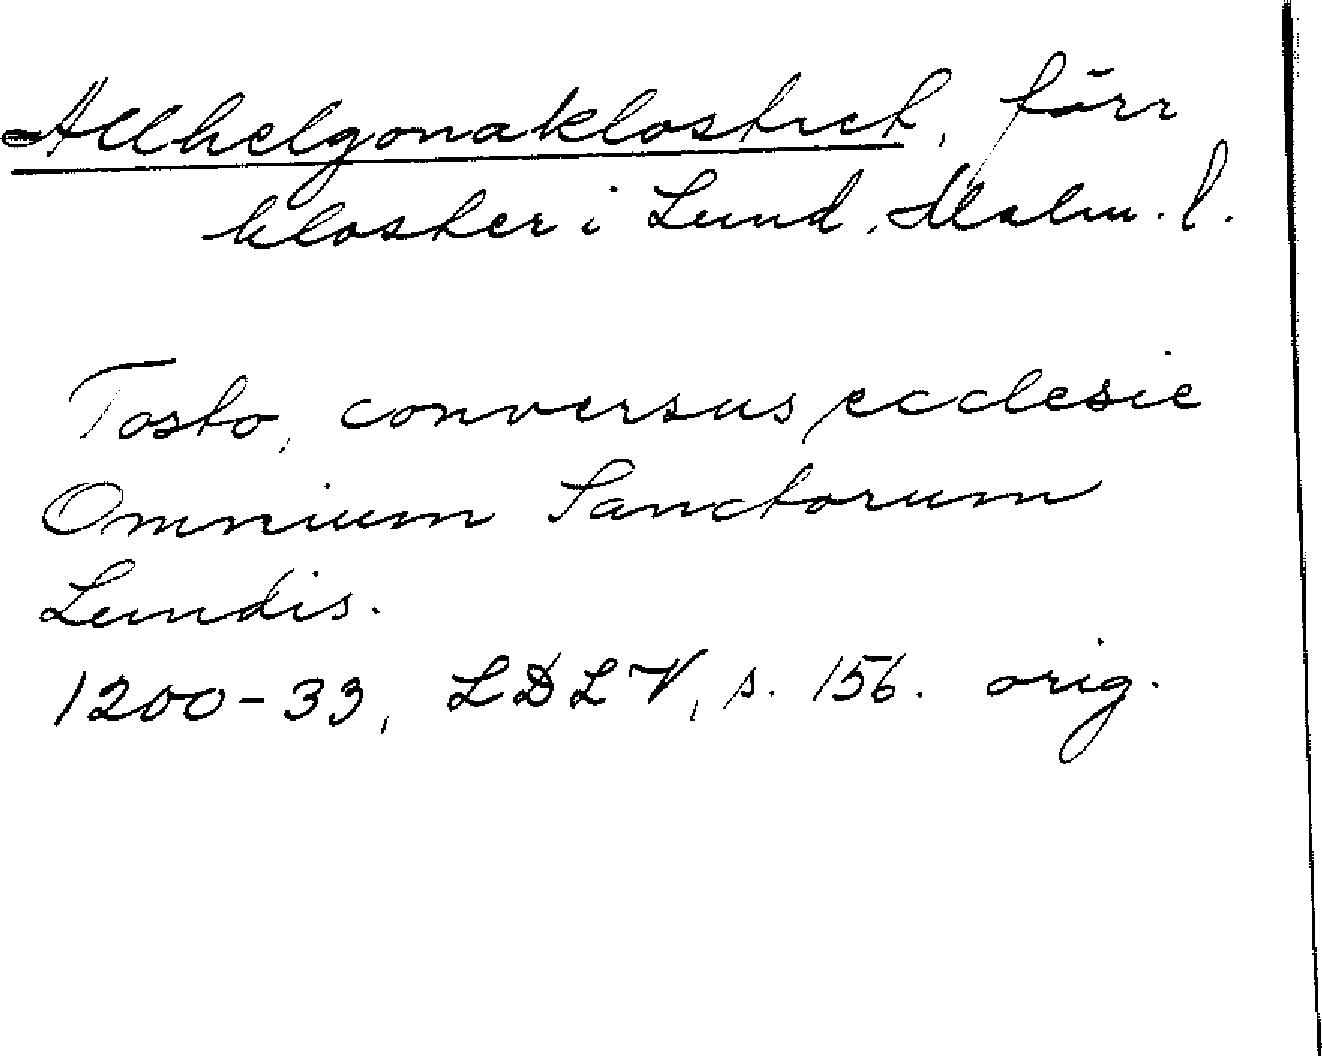 Allhelgonaklostret, förr
kloster i Lund, Malm. l.
Tosto, conversus ecclesie
Omnium Sanctorum
Lundis.
1200-33, LDLV, s. 156. orig.